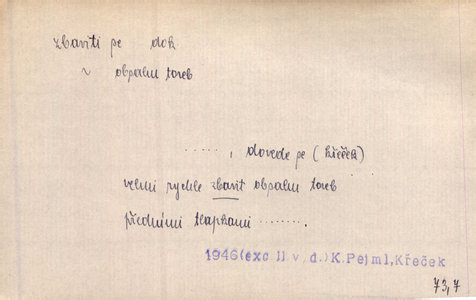 zbaviti se dok.
~ obsahu toreb
....., dovede se (křeček)
velmi rychle zbavit obsahu toreb
předními tlapkami .......
1946(exc II.v.d.)K.Pejml,Křeček
73,7